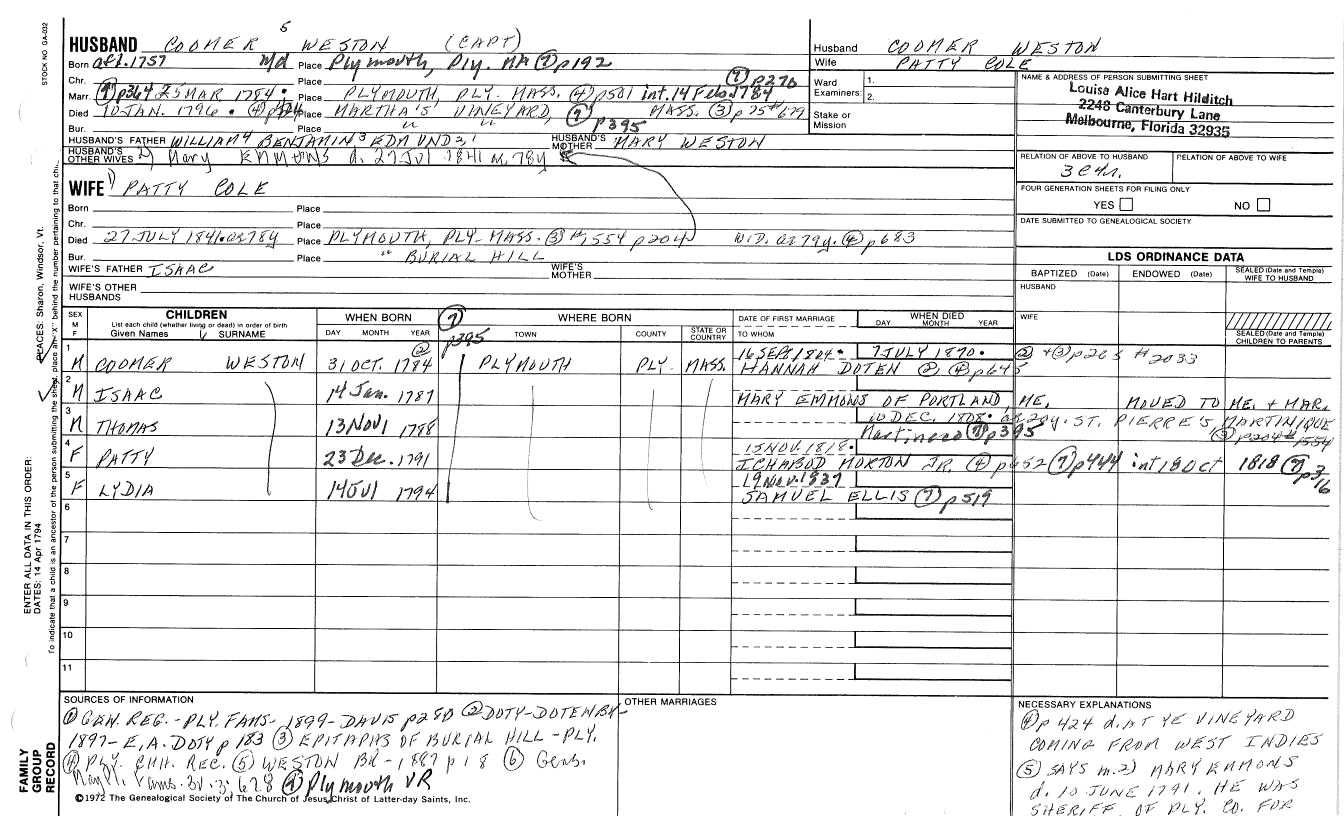 STOCK NO GA-032
5
HUSBAND COOMER WESTON (CAPT)
Born aft.1757 Md Place Plymouth, Ply. MA ⑦p192
Chr. Place ⑦p276
Marr. ⑦p364 25 MAR 1784. Place PLYMOUTH, PLY. MASS. ④p501 int. 14 Feb. 1784
Died 10 JAN. 1796. Place MARTHA'S VINEYARD, MASS. ③p25 #679
Bur. Place " " ⑦p395
HUSBAND'S FATHER WILLIAM4 BENJAMIN3 EDMUND2,1 HUSBAND'S MOTHER MARY WESTON
HUSBAND'S OTHER WIVES 2) Mary EMMONS d. 27 Jul 1841 78y
WIFE 1) PATTY COLE
Born Place
Chr. Place
Died 27 JULY 1841. 78y Place PLYMOUTH, PLY. MASS. ③ #1554 p204 WID. 79y. ④p683
Bur. Place " BURIAL HILL
WIFE'S FATHER ISAAC WIFE'S MOTHER
WIFE'S OTHER HUSBANDS
Husband COOMER WESTON
Wife PATTY COLE
Ward Examiners: 1.
2.
Stake or Mission
NAME & ADDRESS OF PERSON SUBMITTING SHEET
Louise Alice Hart Hilditch
2248 Canterbury Lane
Melbourne, Florida 32935
RELATION OF ABOVE TO HUSBAND RELATION OF ABOVE TO WIFE
FOUR GENERATION SHEETS FOR FILING ONLY
YES NO
DATE SUBMITTED TO GENEALOGICAL SOCIETY
LDS ORDINANCE DATA
BAPTIZED (Date) ENDOWED (Date) SEALED (Date and Temple) WIFE TO HUSBAND
HUSBAND
WIFE
SEALED (Date and Temple) CHILDREN TO PARENTS
SEX M F CHILDREN List each child (whether living or dead) in order of birth Given Names SURNAME
WHEN BORN DAY MONTH YEAR
⑦ p395 WHERE BORN TOWN COUNTY STATE OR COUNTRY
DATE OF FIRST MARRIAGE TO WHOM
WHEN DIED DAY MONTH YEAR
1 M COOMER WESTON 31 OCT. 1784 ② PLYMOUTH PLY. MASS. 16 SEPT 1804. 7 JULY 1870. ② + ③ p265 #2033
HANNAH DOTEN ②, ④ p645
2 M ISAAC 14 Jan. 1787 MARY EMMONS OF PORTLAND, ME. MOVED TO ME. + MAR.
3 M THOMAS 13 NOV 1788 10 DEC. 1808. 20y. ST. PIERRE'S MARTINIQUE
⑦p395 ③ p204 #1554
4 F PATTY 23 Dec. 1791 15 NOV. 1818.
ICHABOD MORTON JR. ④ p452 ⑦p444 int 18 Oct 1818 ⑦ p316
5 F LYDIA 14 Jul 1794 19 NOV. 1837
SAMUEL ELLIS ⑦ p519
6
7
8
9
10
11
PLACES: Sharon, Windsor, Vt.
ENTER ALL DATA IN THIS ORDER:
DATES: 14 Apr 1794
To indicate that a child is an ancestor of the person submitting the sheet, place an "X" behind the number pertaining to that chi
FAMILY GROUP RECORD
SOURCES OF INFORMATION
① GEN. REG. - PLY. FAMS - 1899 - DAVIS p280 ② DOTY-DOTEN BK -
1897 - E. A. DOTY p 183 ③ EPITAPHS OF BURIAL HILL - PLY.
④ PLY. CHH. REC. ⑤ WESTON BK - 1887 p 18 ⑥ Gens.
⑦ Plymouth VR
©1972 The Genealogical Society of The Church of Jesus Christ of Latter-day Saints, Inc.
OTHER MARRIAGES
NECESSARY EXPLANATIONS
④ p 424 d. AT YE VINEYARD
COMING FROM WEST INDIES
⑤ SAYS m. 2) MARY EMMONS
d. 10 JUNE 1791. HE WAS
SHERIFF OF PLY. CO. FOR